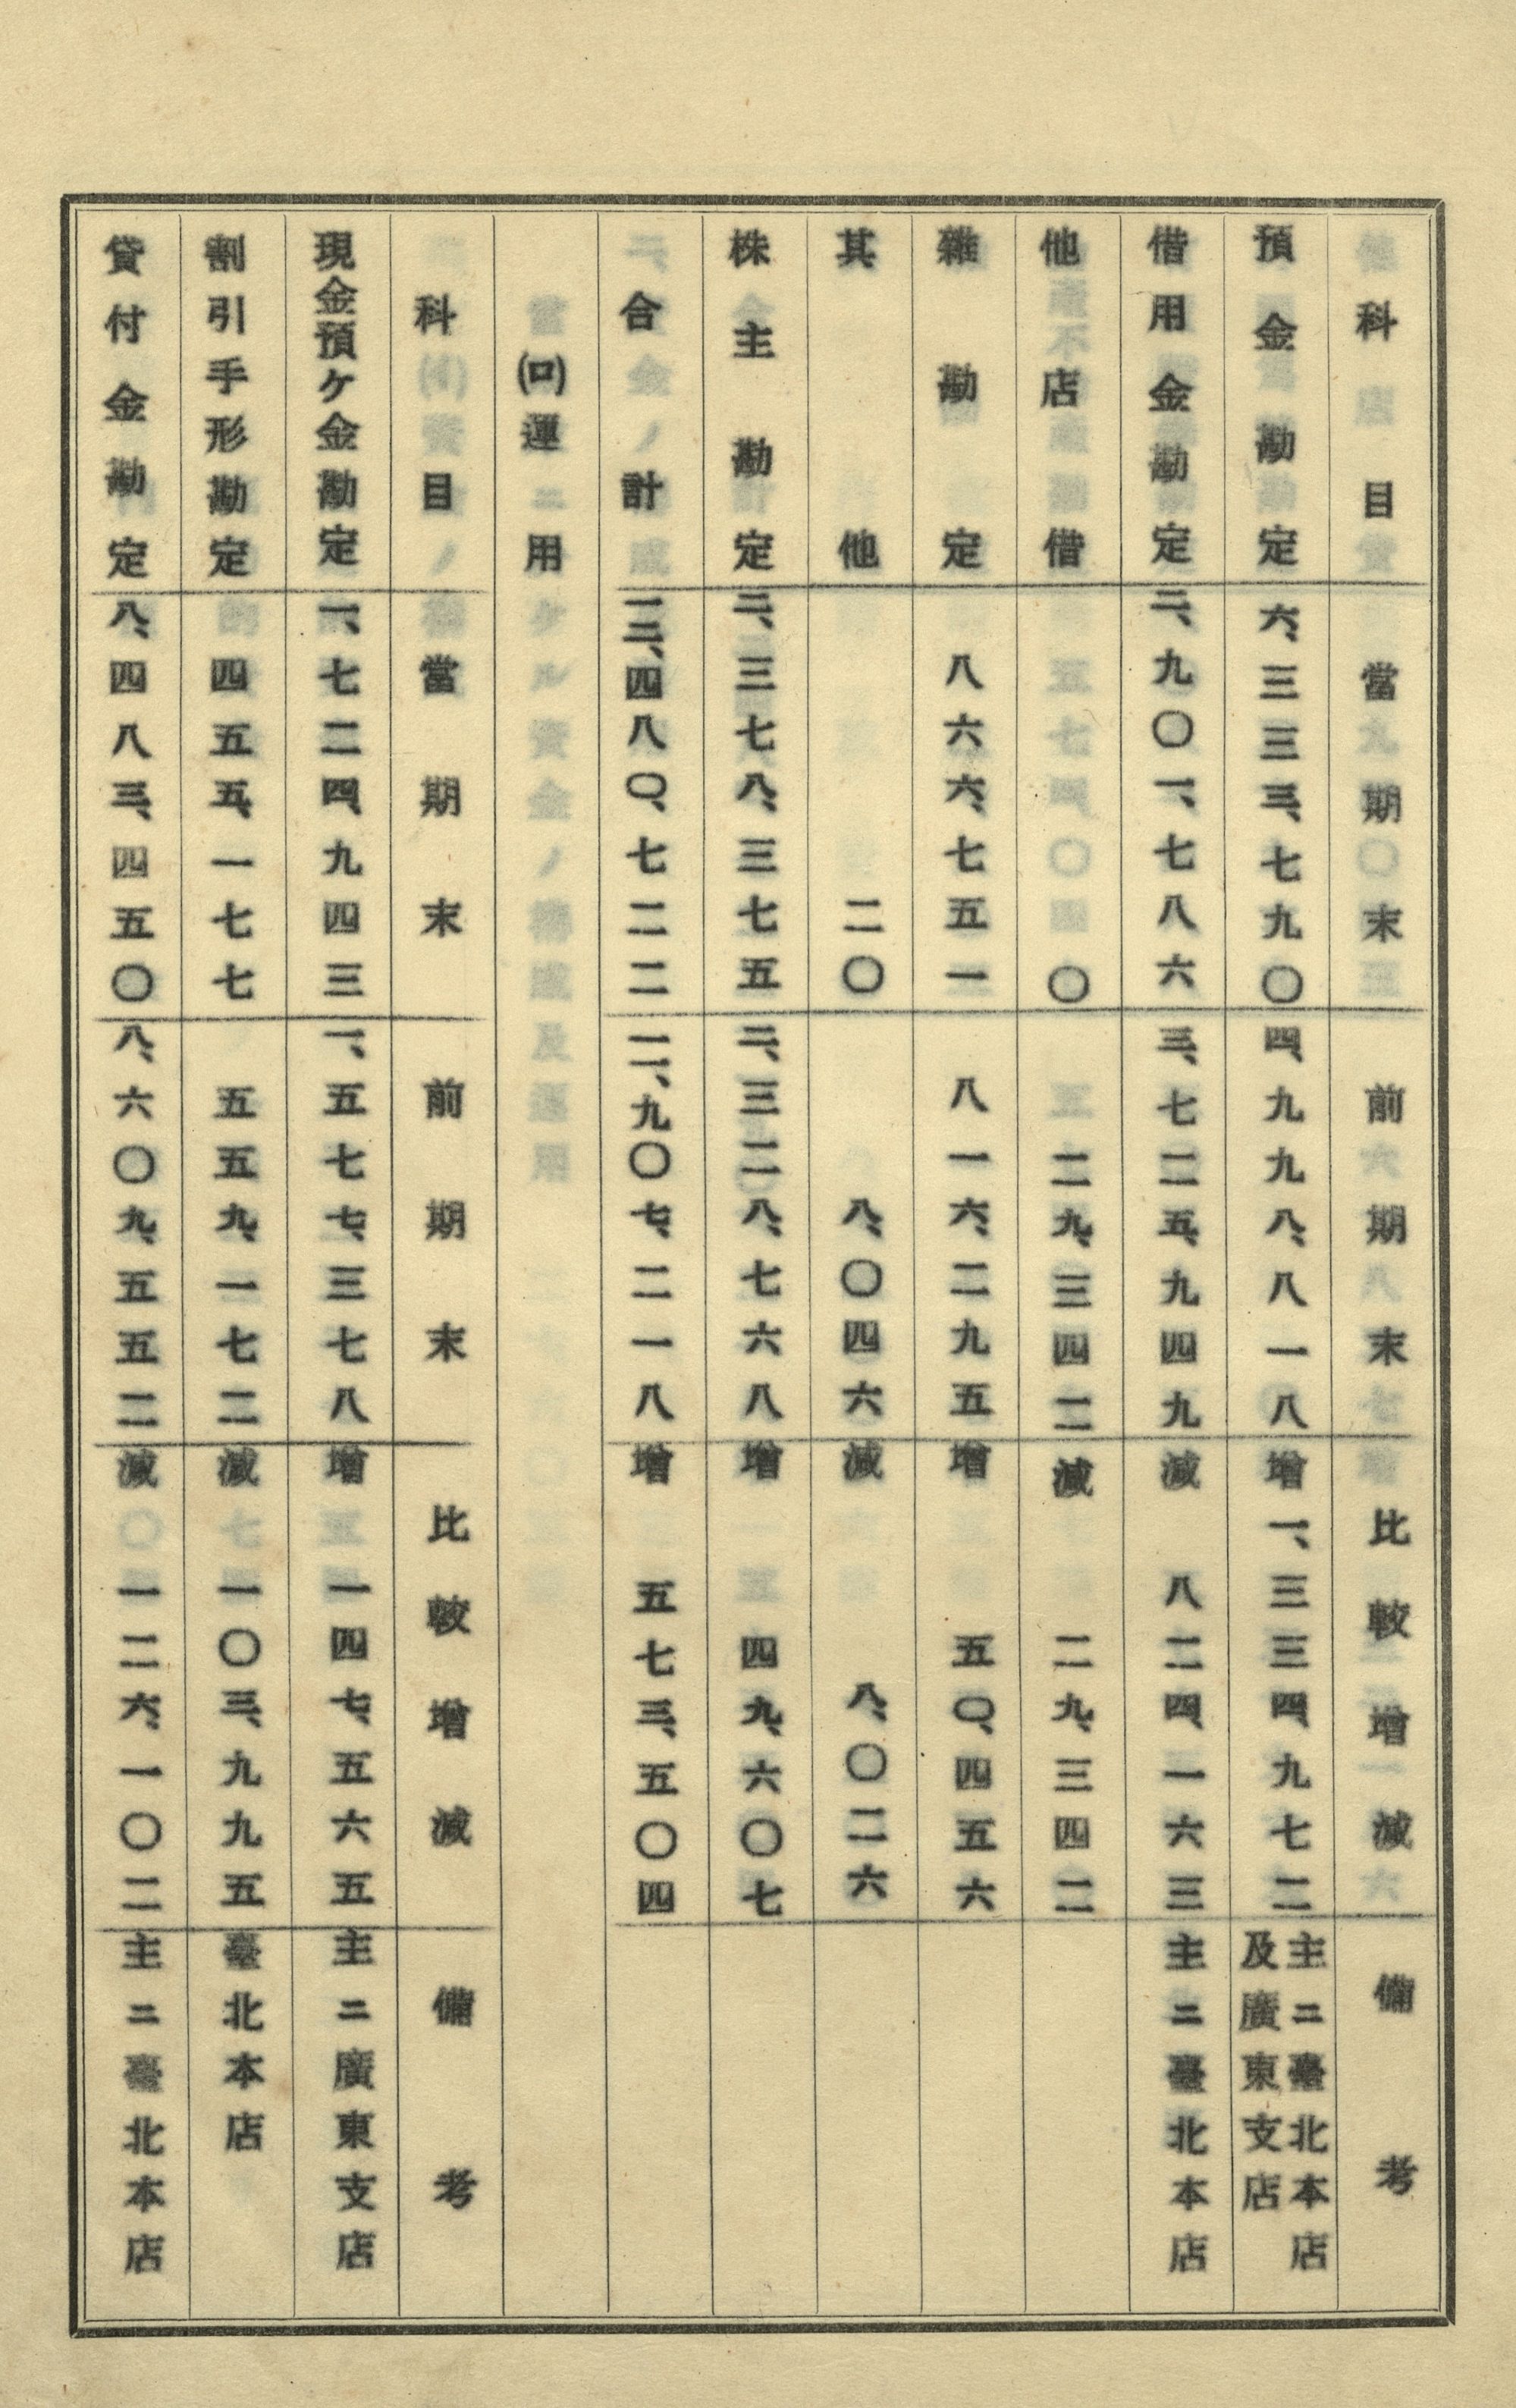 科目 當期末 前期末 比較增減 備考
預金勘定 六、三三三、七九〇 四、九九八、八一八 增一、三三四、九七二 主ニ臺北本店
及廣東支店
借用金勘定 二、九〇一、七八六 三、七二五、九四九 減八二四、一六三 主ニ臺北本店
他店借 〇 二九、三四二 減二九、三四二
雜勘定 八六六、七五一 八一六、二九五 增五〇、四五六
其他 二〇 八、〇四六 減八、〇二六
株主勘定 二、三七八、三七五 二、三二八、七六八 增四九、六〇七
合計 一二、四八〇、七二二 一一、九〇七、二一八 增五七三、五〇四
(ロ)運用
科目 當期末 前期末 比較增減 備考
現金預ケ金勘定 一、七二四、九四三 一、五七七、三七八 增一四七、五六五 主ニ廣東支店
割引手形勘定 四五五、一七七 五五九、一七二 減一〇三、九九五 臺北本店
貸付金勘定 八、四八三、四五〇 八、六〇九、五五二 減一二六、一〇二 主ニ臺北本店